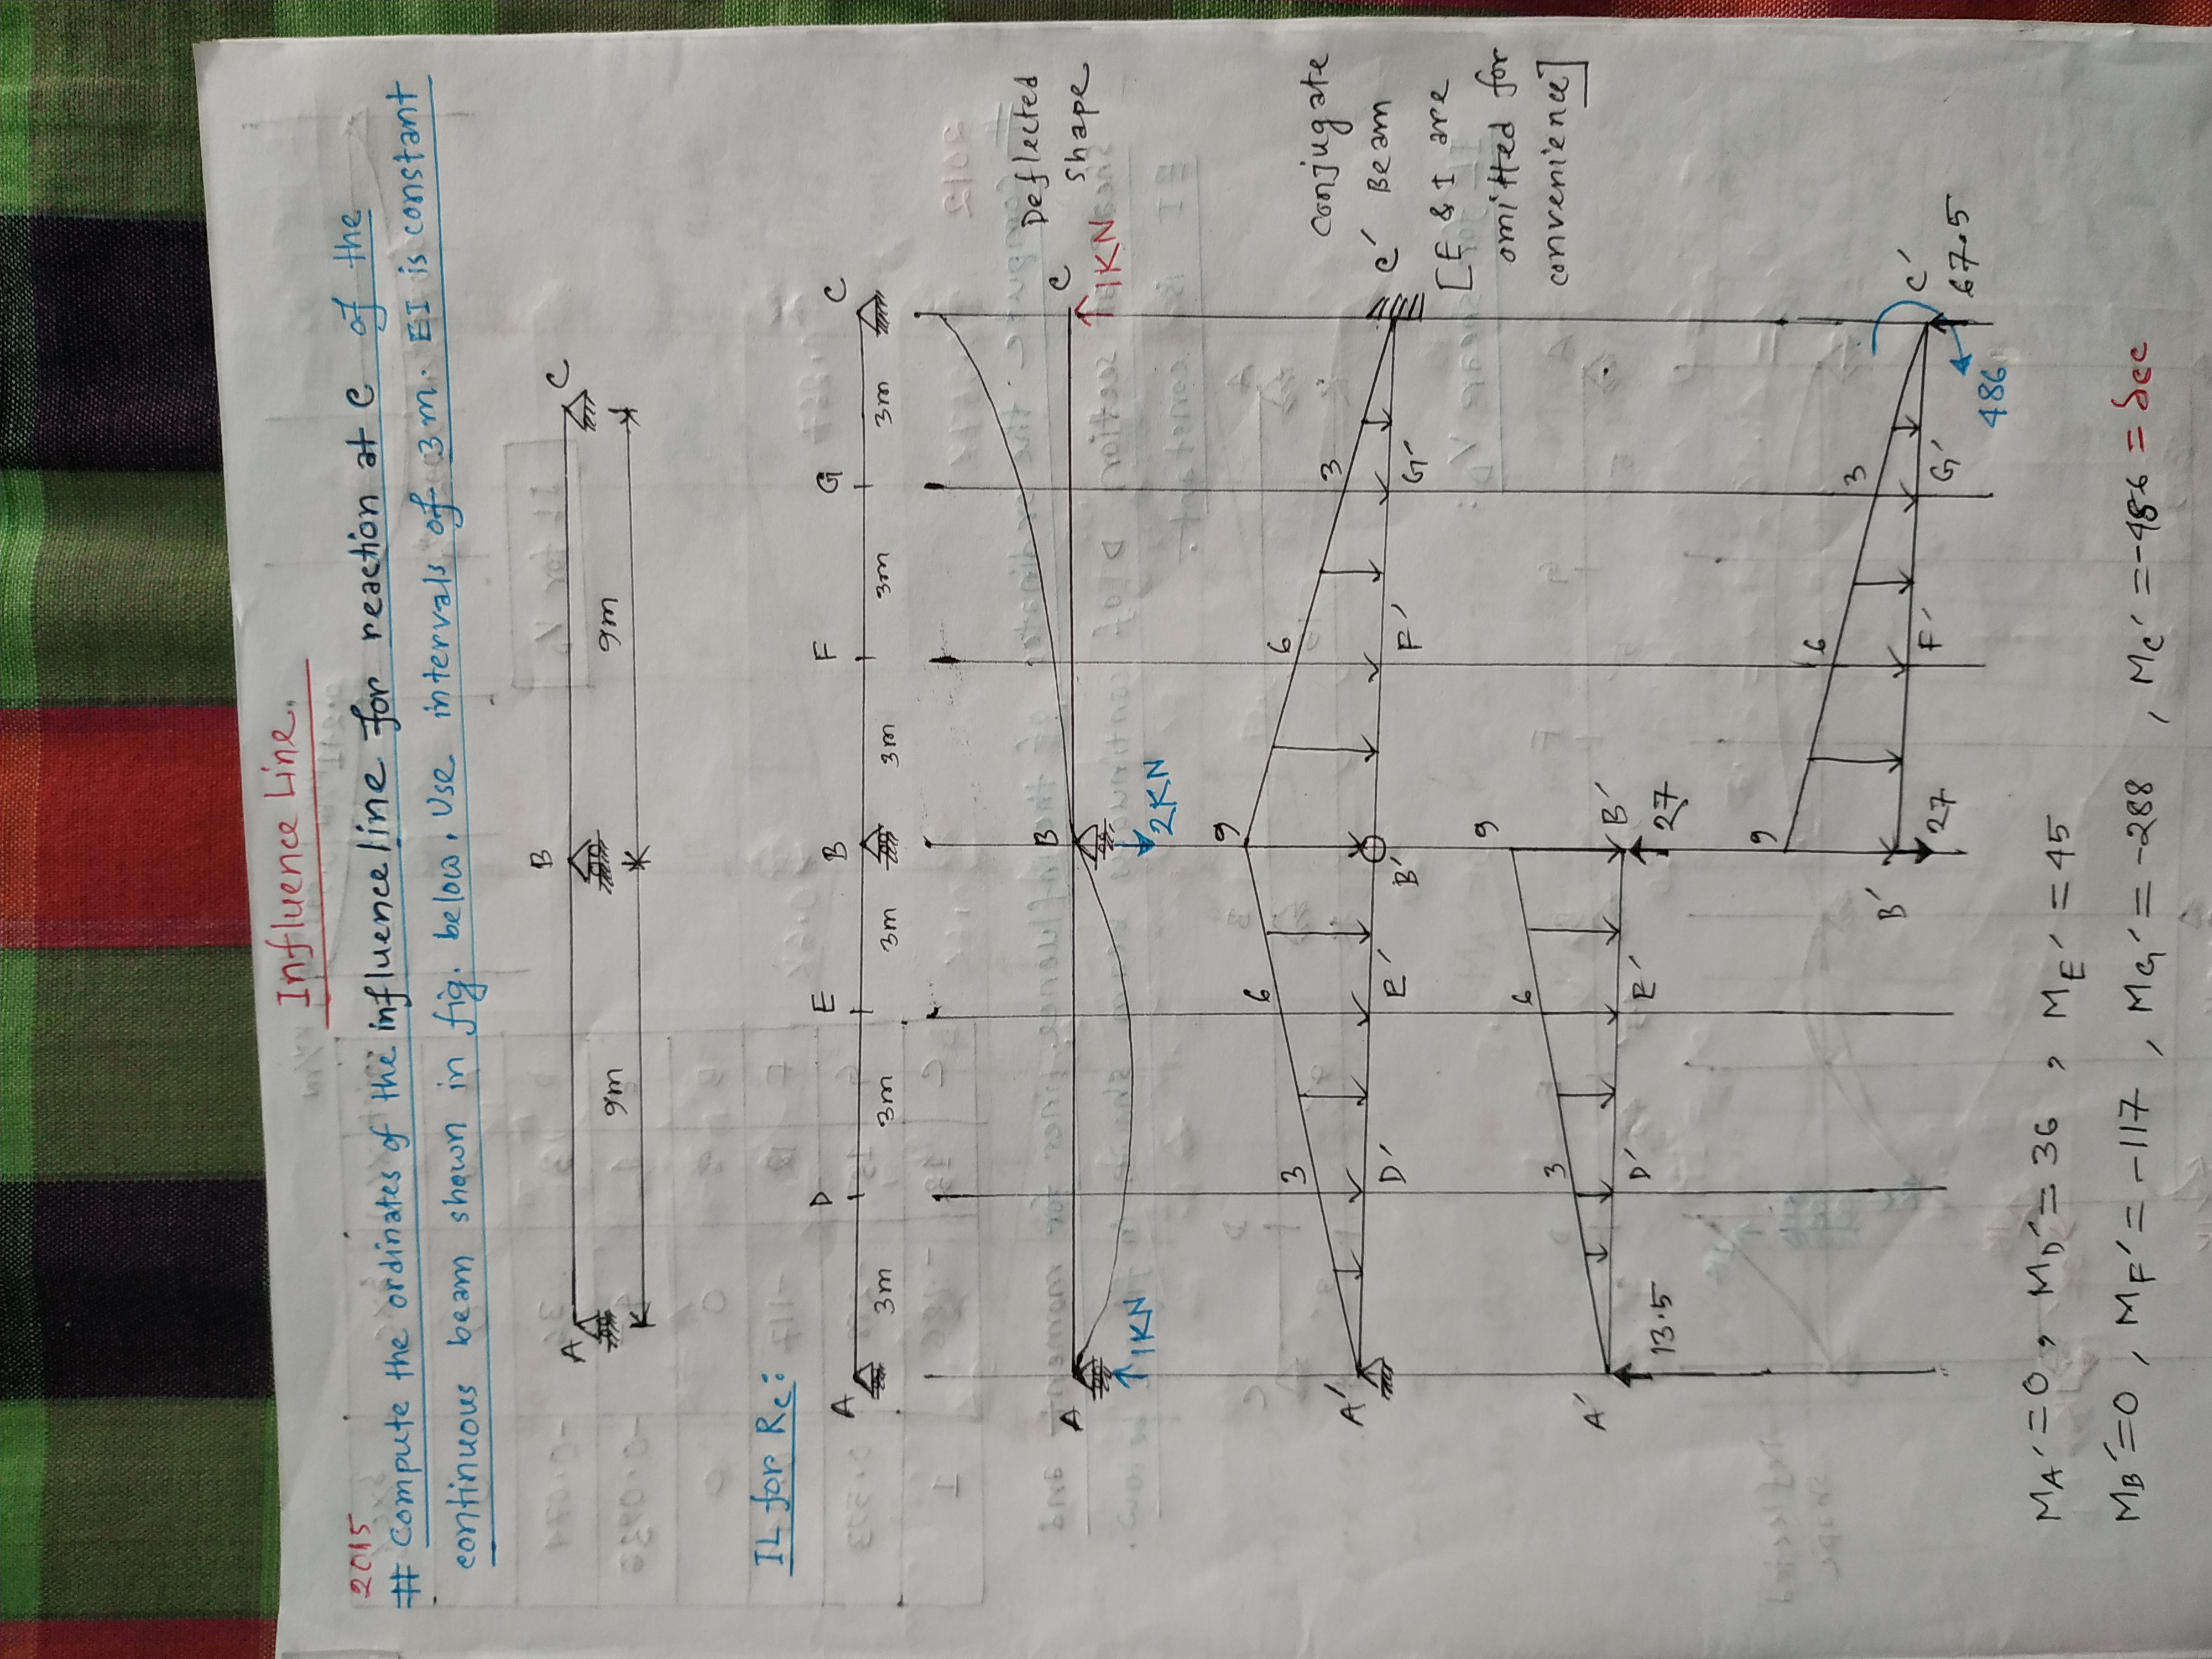 Influence Line.
2015
# Compute the ordinates of the influence line for reaction at C of the
continuous beam shown in fig. below. Use intervals of 3m. EI is constant
A B C
9m 9m
IL for Rc:
A D E B F G C
3m 3m 3m 3m 3m 3m
Deflected
shape
A B C
1KN 2KN 1KN
conjugate
Beam
[E & I are
omitted for
convenience]
3 6 9 6 3
A' D' E' B' F' G' C'
3 6 9
A' D' E' B'
13.5 27
9 6 3
B' F' G' C'
27 67.5
486
MA'=0, MD'=36, ME'=45
MB'=0, MF'=-117, MG'=-288, MC'=-486=δcc